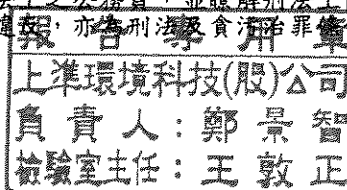 違反，亦為刑法及貪污治罪條
報告專用章
上準環境科技(股)公司
負責人：鄭景智
檢驗室主任：王敦正